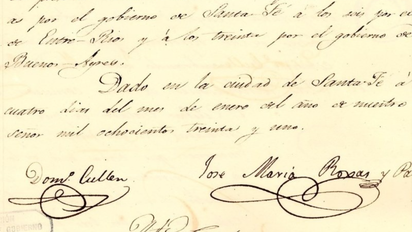 as por el gobierno de Santa Fé a los seis por el
de Entre-Rios y a los treinta por el gobierno de
Buenos-Ayres.
Dado en la ciudad de Santa Fé a
cuatro dias del mes de enero del año de nuestro
señor mil ochocientos treinta y uno.
Domo. Cullen
Jose Maria Roxas y Pa